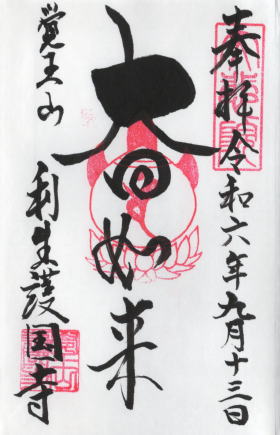 奉拝 令和六年九月十三日
大日如来
覚王山
利生護国寺